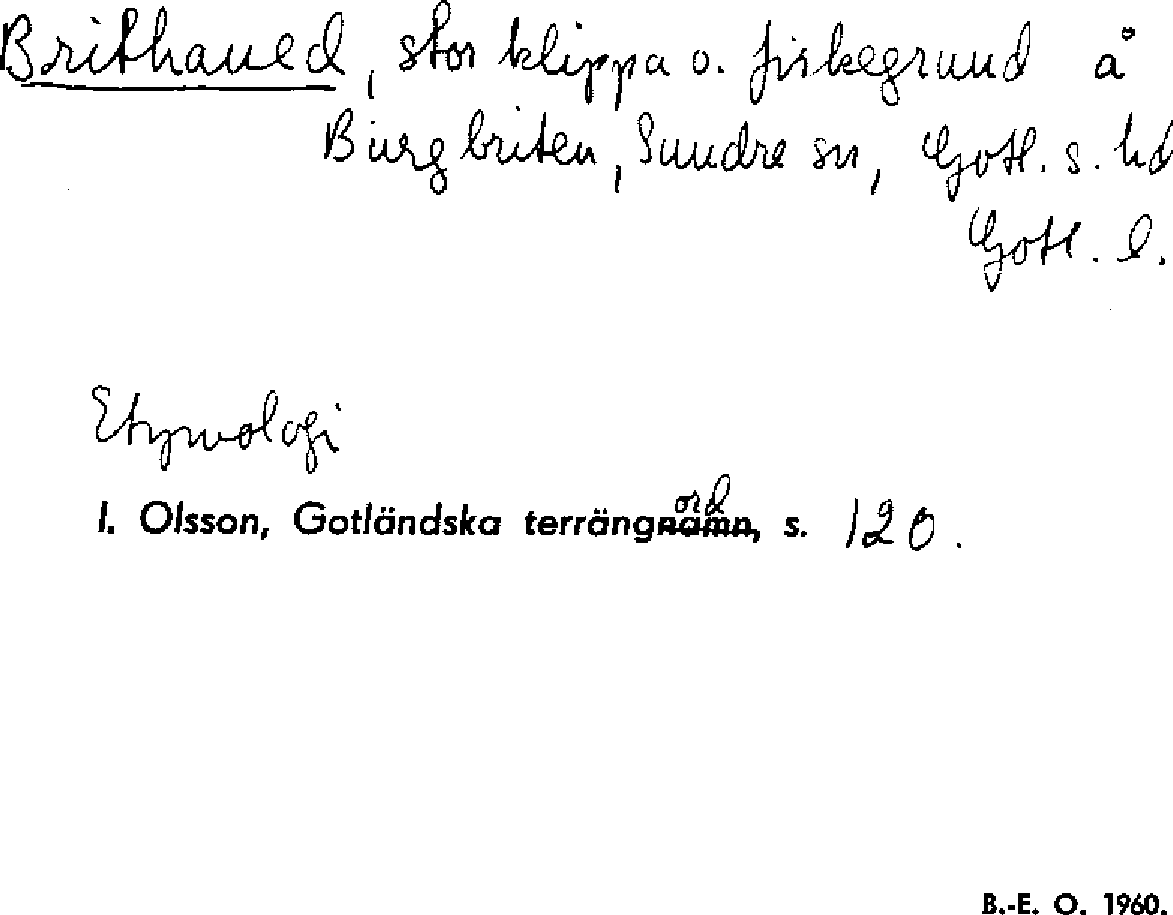 Brithaued, stor klippa o. fiskegrund å
Burgbriten, Sundre sn, Gotl. s. hd
Gotl. l.
Etymologi
I. Olsson, Gotländska terrängord, s. 120.
B.-E. O. 1960.